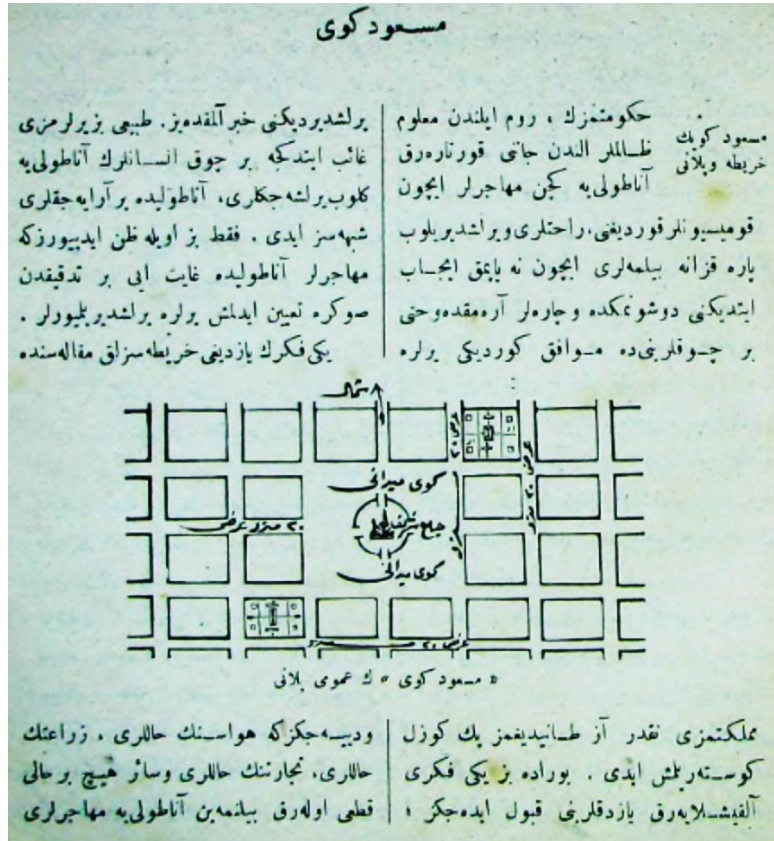 مسعود كوی
مسعود كویك
خریطه وپلانی
حكومتمزك ، روم ایلندن معلوم
ظـالملر الندن جانی قورتاره‌رق
آناطولی‌یه كچن مهاجرلر ایچون
قومیسیونلر قوردیغی، راحتلری ویرلشدیریلوب
پاره قزانه بیلمه‌لری ایچون نه یاپمق ایجـاب
ایتدیكنی دوشونمكده وچاره‌لر آره‌مقده وحتی
بر چـوقلرینی‌ده مـوافق كوردیكی یرلره
یرلشدیردیكنی خبر آلمقده‌یز. طبیعی بز یرلرمزی
غائب ایتدكجه بر چوق انسـانلرك آناطولی‌یه
كلوب یرلشه‌جكلری، آناطولیده یر آرایه‌جقلری
شبهه‌سز ایدی . فقط بز اویله ظن ایدییورزكه
مهاجرلر آناطولیده غایت ایی بر تدقیقدن
صوكره تعیین ایدلمش یرلره یرلشدیریلیورلر .
یكی فكرك یازدیغی خریطه‌سزلق مقاله‌سنده
شمال
كوی میدانی
جامع شریف
كوی میدانی
٢٠ مترو عرضی
« مسعود كوی » ك عمومی پلانی
مملكتمزی نقدر آز طـانیدیغمز پك كوزل
كوسـتریلمش ایدی . بوراده بز یكی فكری
آلقیشـلایه‌رق یازدقلرینی قبول ایده‌جكز ؛
ودییـه‌جكزكه هواسـنك حاللری ، زراعتك
حاللری، تجارتنك حاللری وسائر هیـچ بر حالی
قطعی اوله‌رق بیلنمه‌ین آناطولی‌یه مهاجرلری